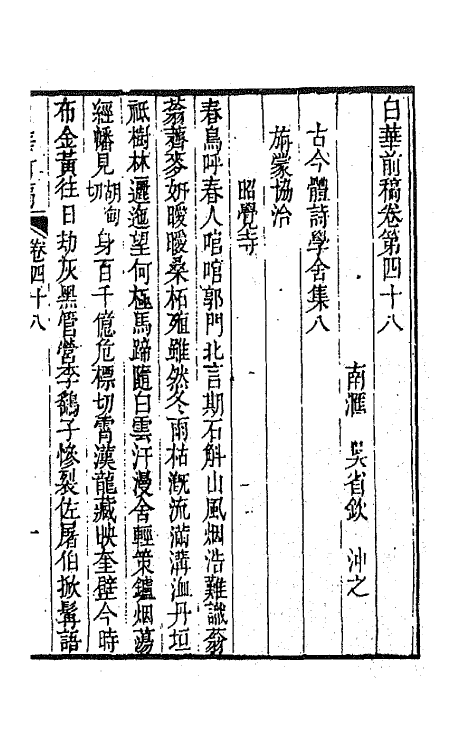 白華前稿卷第四十八
南滙 吳省欽 沖之
古今體詩學舍集八
旃蒙協洽
昭覺寺
春鳥呼春人喧喧郭門北言期石斛山風烟浩難識蓊
蓊薺麥妍曖曖桑柘殖雖然冬雨枯溉流滿溝洫丹垣
祇樹林邐迤望何極馬蹄隨白雲汗漫舍輕策鑪烟蕩
經幡見胡甸切身百千億危標切霄漢龍藏映奎壁今時
布金黃往日劫灰黑管營李鷂子慘裂佐屠伯掀髯語
卷四十八
一